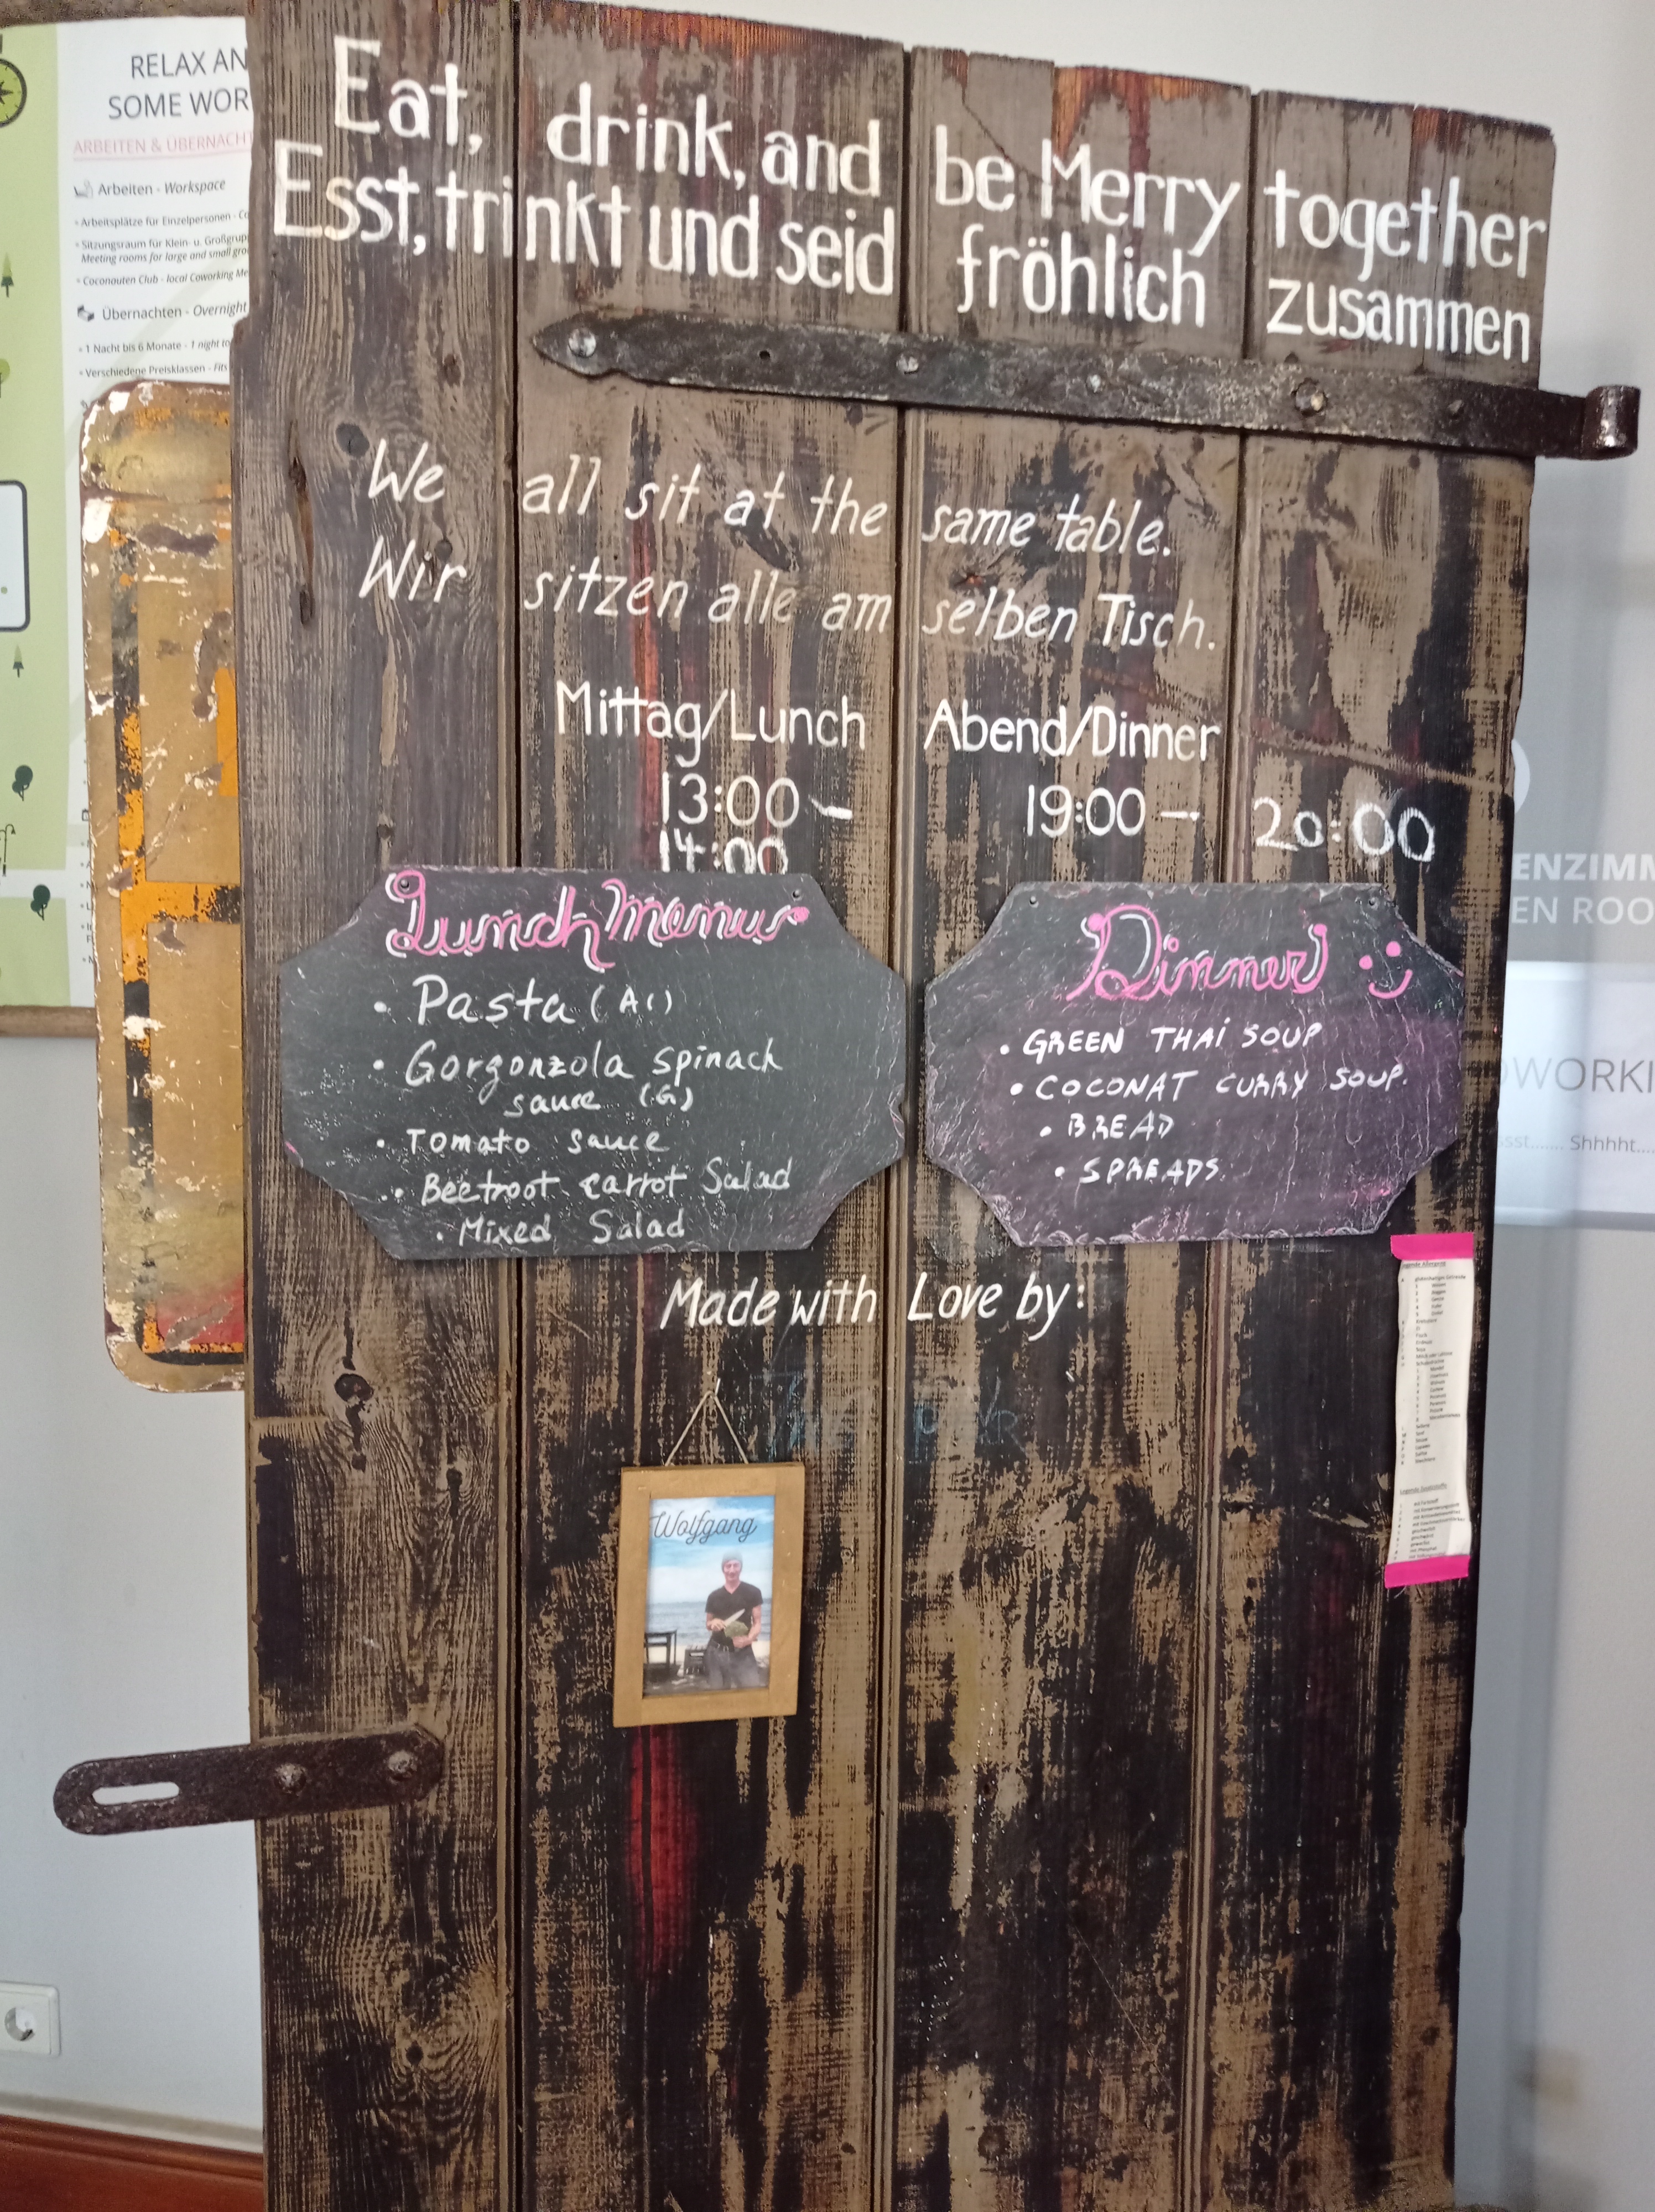 RELAX AN
SOME WOR
ARBEITEN & ÜBERNACHT
Arbeiten - Workspace
Arbeitsplätze für Einzelpersonen - Co
Sitzungsraum für Klein- u. Großgrup
Meeting rooms for large and small gro
Coconauten Club - local Coworking Me
Übernachten - Overnight
1 Nacht bis 6 Monate - 1 night to
Verschiedene Preisklassen - Fits
Eat, drink, and be Merry together
Esst, trinkt und seid fröhlich zusammen
We all sit at the same table.
Wir sitzen alle am selben Tisch.
Mittag/Lunch
13:00 -
14:00
Abend/Dinner
19:00 - 20:00
Lunch Menus
• Pasta (A1)
• Gorgonzola spinach
sauce (G)
• Tomato sauce
• Beetroot carrot Salad
• Mixed Salad
Dinner
• GREEN THAI SOUP
• COCONAT CURRY SOUP.
• BREAD
• SPREADS
Made with Love by:
Wolfgang
ENZIMM
EN ROO
OWORKI
ssst....... Shhhht....
Legende Allergene